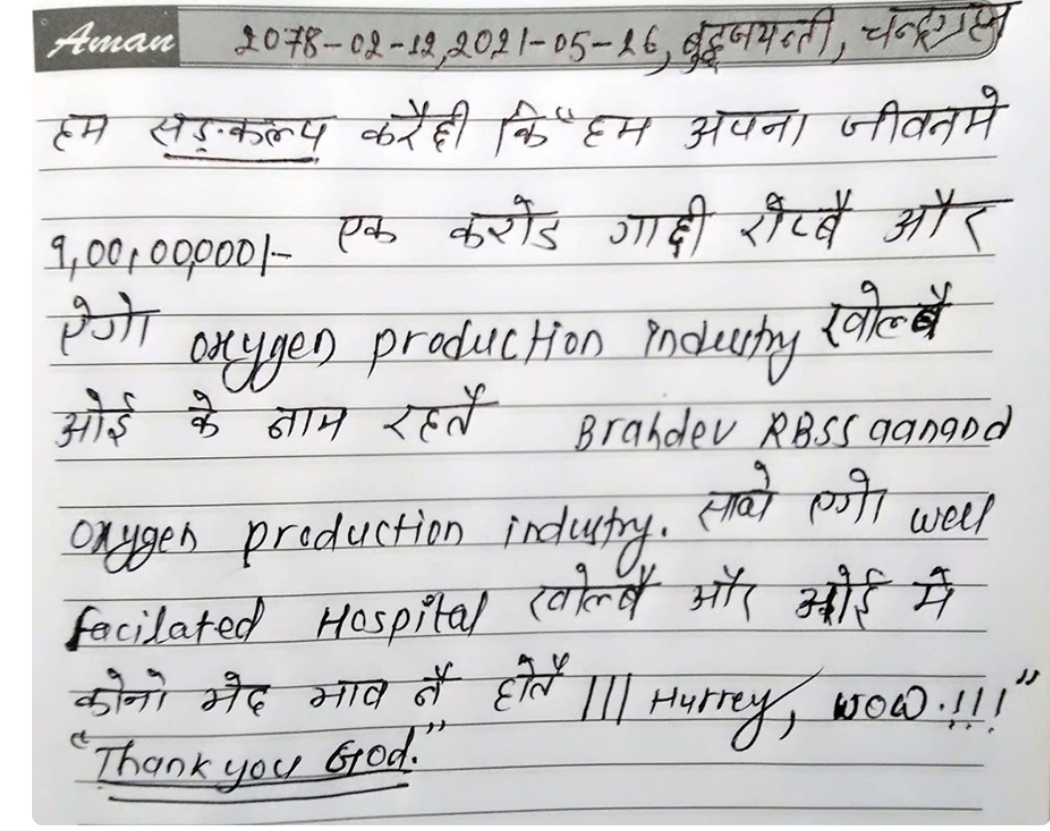 Aman 2078-02-12, 2021-05-26, बुद्धजयन्ती, चन्द्रग्रहन
हम सङ्कल्प करैछी कि "हम अपना जीवनमे
१,००,००,०००।- एक करोड गाछी रोप्बै और
ऐगो oxygen production industry खोल्बै
ओई के नाम रहतै Brahdev RBSS aanand
oxygen production industry. साथे एगो well
facilated Hospital खोल्बै और ओई मे
कोनो भेद भाव नै होतै ||| Hurrey, wow.!!!"
"Thank you God."